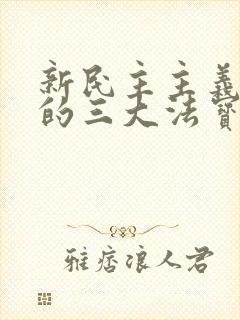 新民主主義
的三大法寶
雅痞浪人君